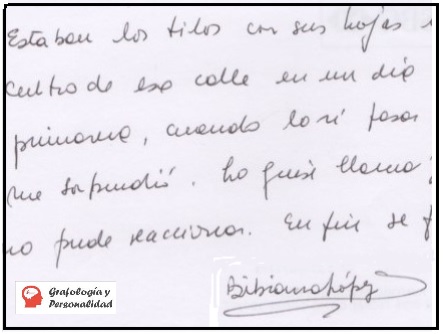 Estaban los tilos con sus hojas
centro de esa calle en un día
primavera, cuando lo vi pasar
me sorprendió. Lo quise llamar
no pude reaccionar. En fin se f
Bibiana López
Grafología y
Personalidad